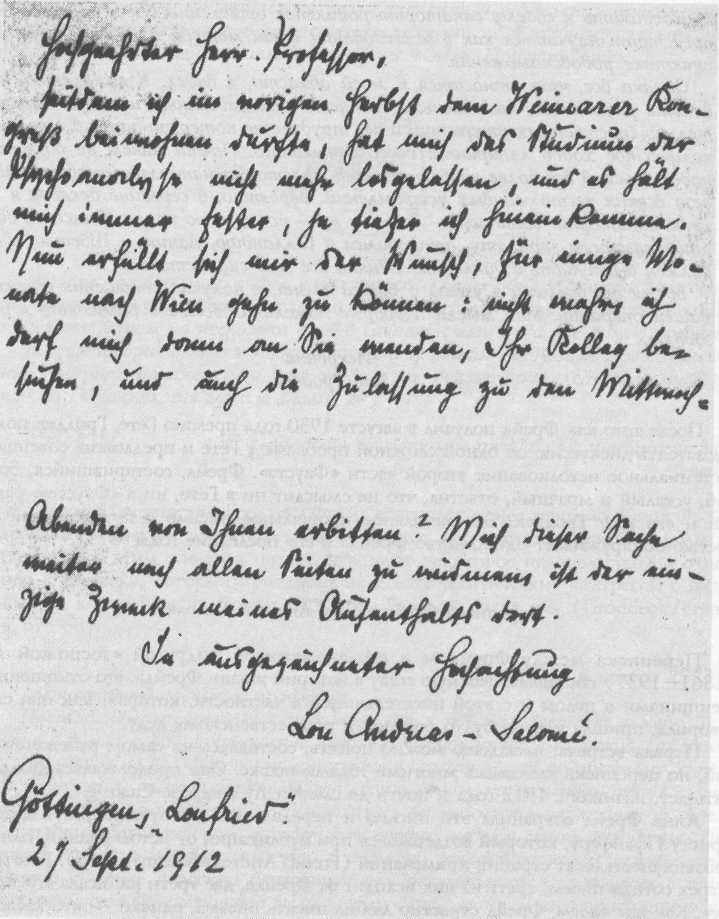 Hochgeehrter Herr Professor,
seitdem ich im vorigen Herbst dem Weimarer Kon-
greß beiwohnen durfte, hat mich das Studium der
Psychoanalyse nicht mehr losgelassen, und es hält
mich immer fester, je tiefer ich hineinkomme.
Nun erfüllt sich mir der Wunsch, für einige Mo-
nate nach Wien gehn zu können: nicht wahr, ich
darf mich dann an Sie wenden, Ihr Kolleg be-
suchen, und auch die Zulassung zu den Mittwoch-
Abenden von Ihnen erbitten? Mich dieser Sache
weiter nach allen Seiten zu widmen ist der ein-
zige Zweck meines Aufenthalts dort.
In ausgezeichneter Hochachtung
Lou Andreas-Salomé.
Göttingen, "Loufried"
27 Sept. 1912